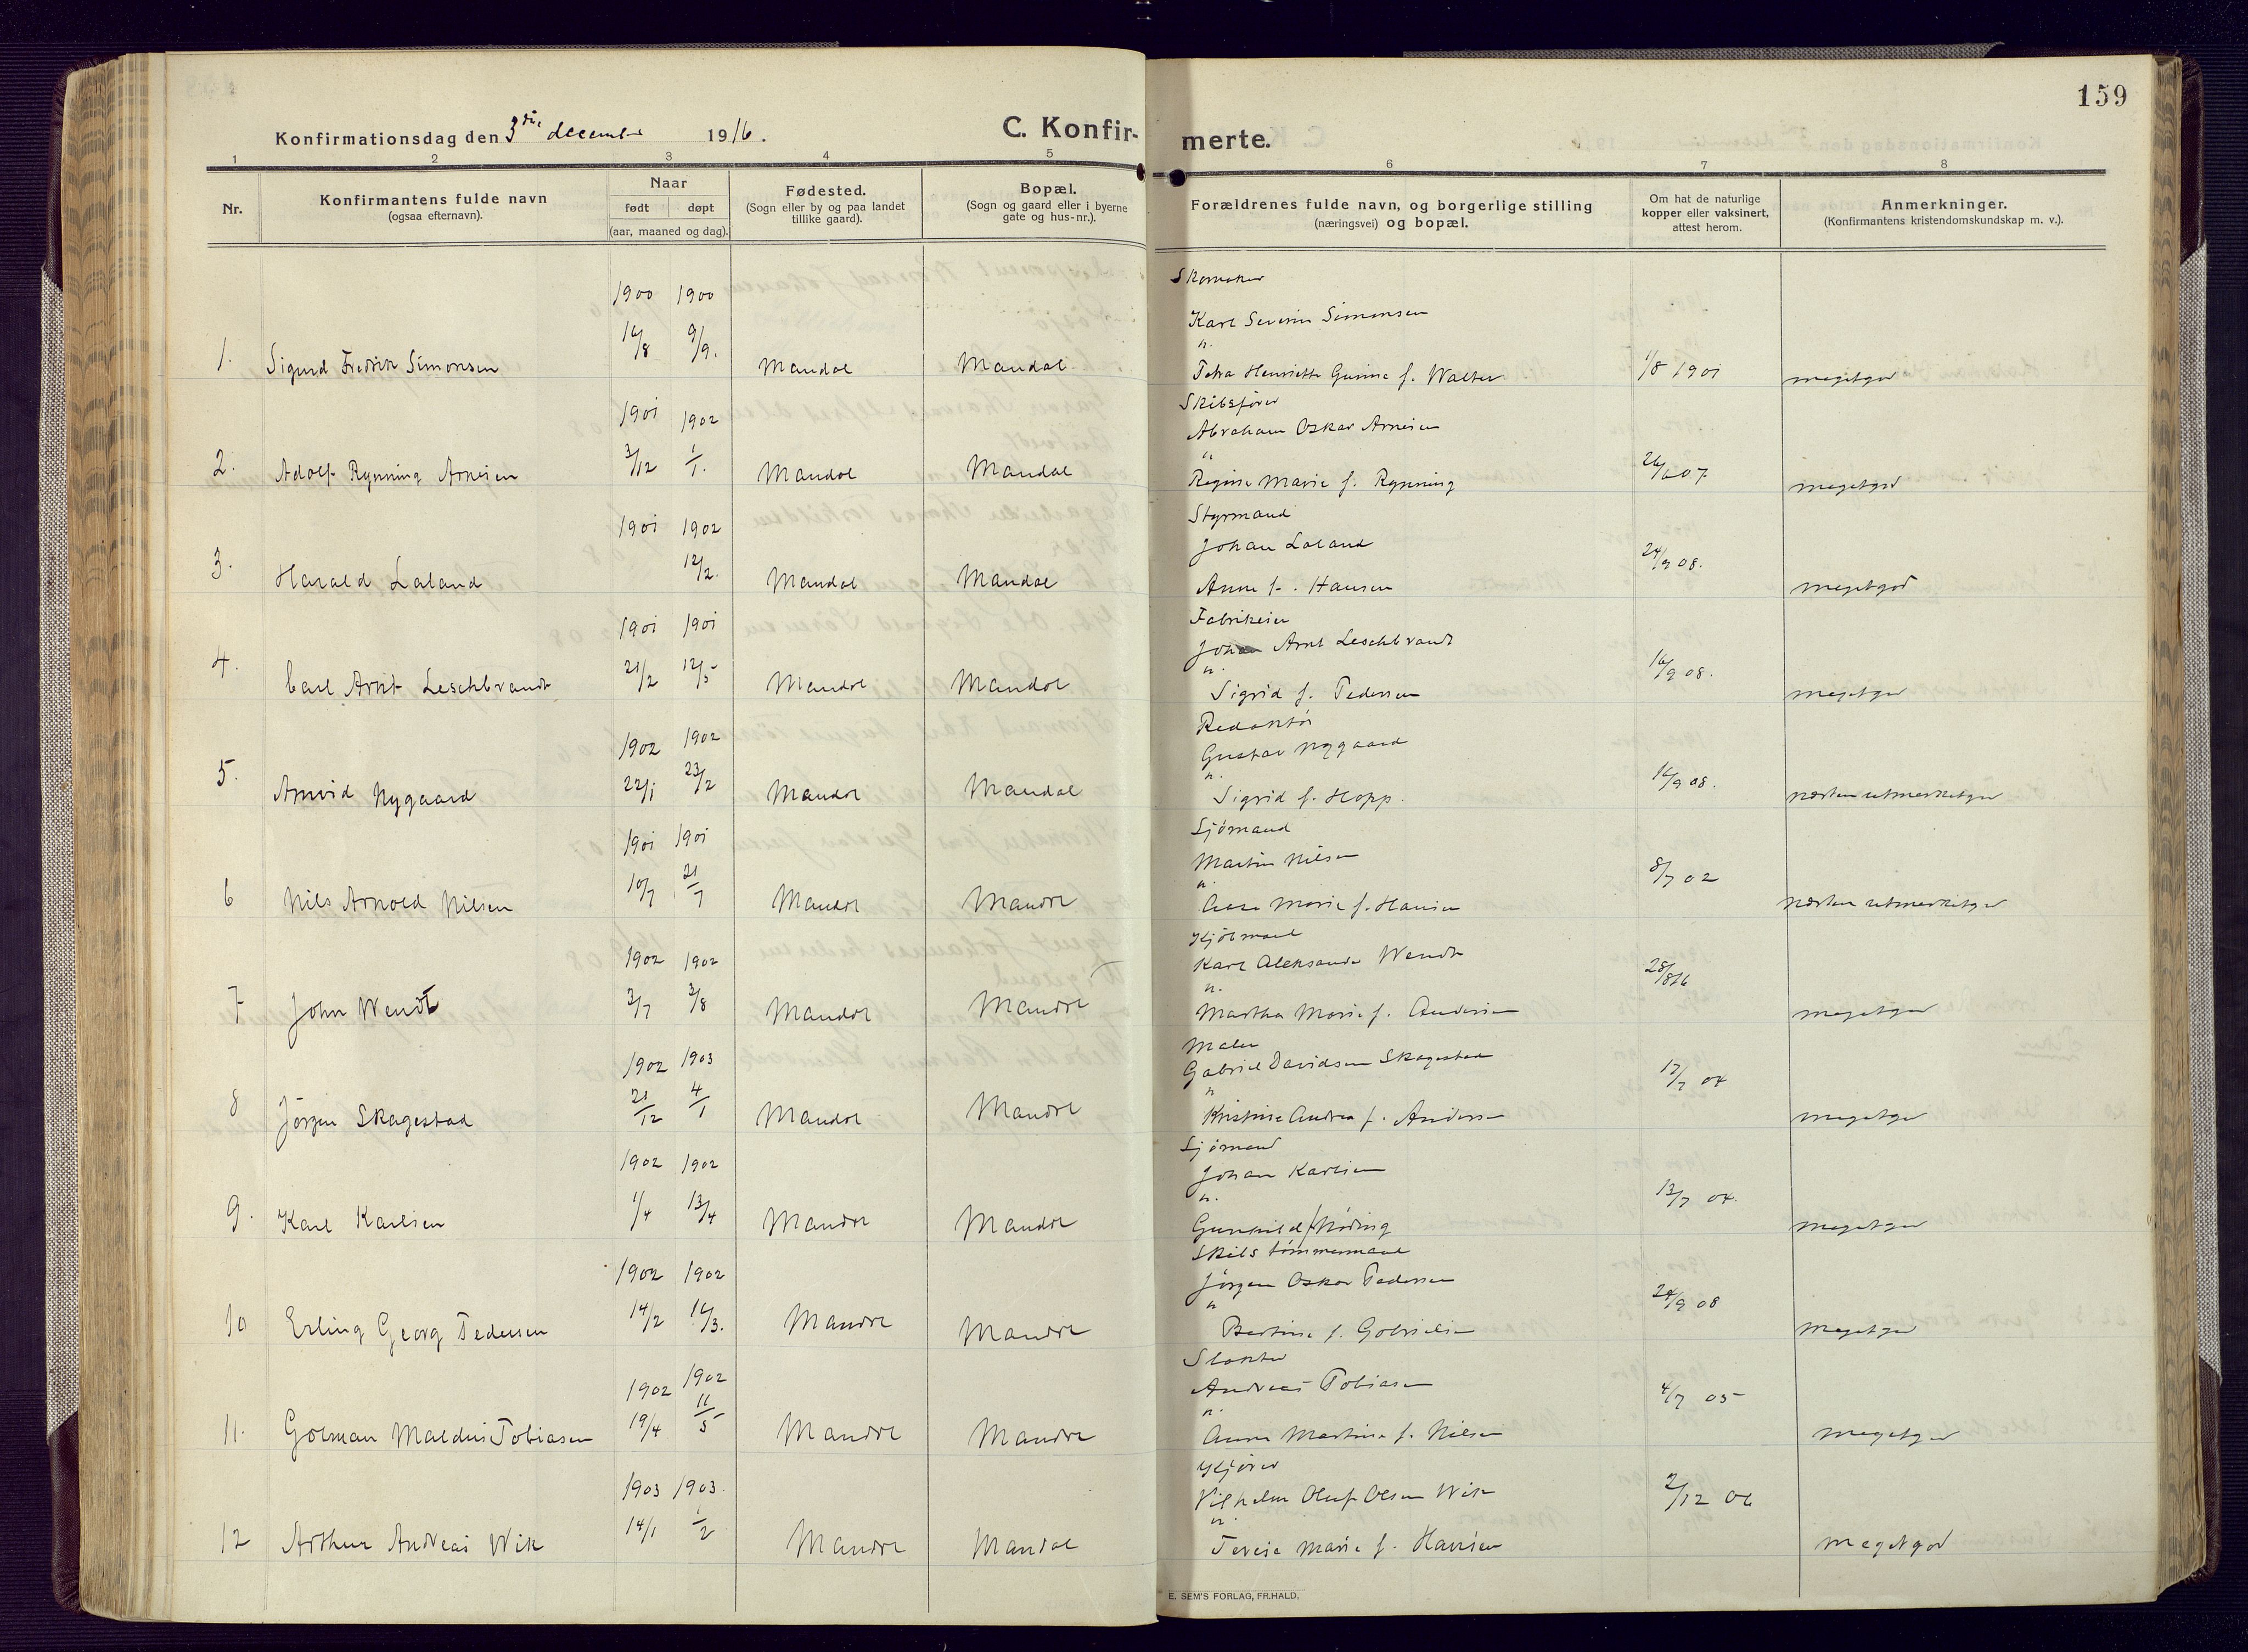 159
Konfirmationsdag den 3die december 1916.
C. Konfirmerte.
1 2 3 4 5 6 7 8
Nr.
Konfirmantens fulde navn
(ogsaa efternavn).
Naar
født døpt
(aar, maaned og dag).
Fødested.
(Sogn eller by og paa landet
tillike gaard).
Bopæl.
(Sogn og gaard eller i byerne
gate og hus-nr.).
Forældrenes fulde navn, og borgerlige stilling
(næringsvei) og bopæl.
Om hat de naturlige
kopper eller vaksinert,
attest herom.
Anmerkninger.
(Konfirmantens kristendomskundskap m. v.).
Skomaker
1900 1900
Karl Severin Simonsen
16/8 9/9.
1. Sigurd Fredrik Simonsen Mandal Mandal Henriette f. Walter 1/8 1901 megetgod
Skibsfører
1901 1902
Abraham Oskar Arnesen
3/12 1/1.
2. Adolf Rynning Arnesen Mandal Mandal Regine Marie f. Rynning 07 megetgod
Styrmand
1901 1902
Johan Laland
12/2.
3. Harald Laland Mandal Mandal Anna f. Hansen 24/9 08. megetgod
1901 1901
Johan Arnt Leschbrandt
21/2 12/5
4. Carl Arnt Leschbrandt Mandal Mandal Sigrid f. Pedersen 16/9 08. megetgod
Redaktør
1902 1902
Gustav Nygaard
22/1 23/2
5. Arnvid Nygaard Mandal Mandal Sigrid f. Hopp. 16/9 08. næsten utmerketgod
Sjömand
1901 1901
Martin Nilsen
10/7 21/7
6 Nils Arnold Nilsen Mandal Mandal Marie f. Hansen 8/7 02 næsten utmerketgod
Kjöbmand
1902 1902
Karl Aleksander Wendt
3/7 3/8
7 John Wendt Mandal Mandal Martha Marie f. Andersen 28/8 16 megetgod
Maler
1902 1903
Gabriel Davidsen Skagestad
21/12 4/1
8 Jörgen Skagestad Mandal Mandal Kristine Andrea f. Andersen 04 megetgod
Sjömand
1902 1902
Johan Karlsen
1/4 13/4
9. Karl Karlsen Mandal Mandal Gunhild f. 13/7 04. megetgod
Skibstömmermand
1902 1902
Jörgen Oskar Pedersen
14/2 16/3.
10 Erling Georg Pedersen Mandal Mandal Bertine f. Gabrielsen 24/9 08 megetgod
Slakter
1902 1902
Andreas Tobiasen
19/4 11/5
11. Golman Tobiasen Mandal Mandal Anna Martine f. Nilsen 4/7 05 megetgod
Kjörer
1903 1903.
Vilhelm Oluf Olsen Wik
14/1 1/2
12 Arthur Andreas Wik Mandal Mandal Terese Marie f. Hansen 2/12 06 megetgod
E. SEM'S FORLAG, FR.HALD.